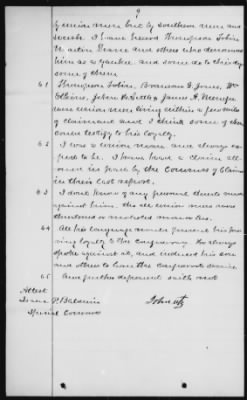 9
by union men but by southern men and
I have heard Thompson Tobin
Newton Evans and others who denounced
him as a yankee and some as to
some of them
61 Thompson Tobin, Branson G. Jones, Wm
Elkins, John &
were union men, living within a few miles
of claimant and I think some of them
could testify to his loyalty.
62 I was a union man and always ex-
pect to be. I have had a claim all-
owed in part by the Commrs of Claims
in their last report.
63 I don't know of any personal threats made
against him. The all union men were
threatened or molested more or less
64 All his language and general bearing
loyalty to the confederacy. He always
spoke against it, and induced his son
and others to leave the confederate service
65 And further deponent saith not
Attest John Utz
P. Baldwin
Special Commr